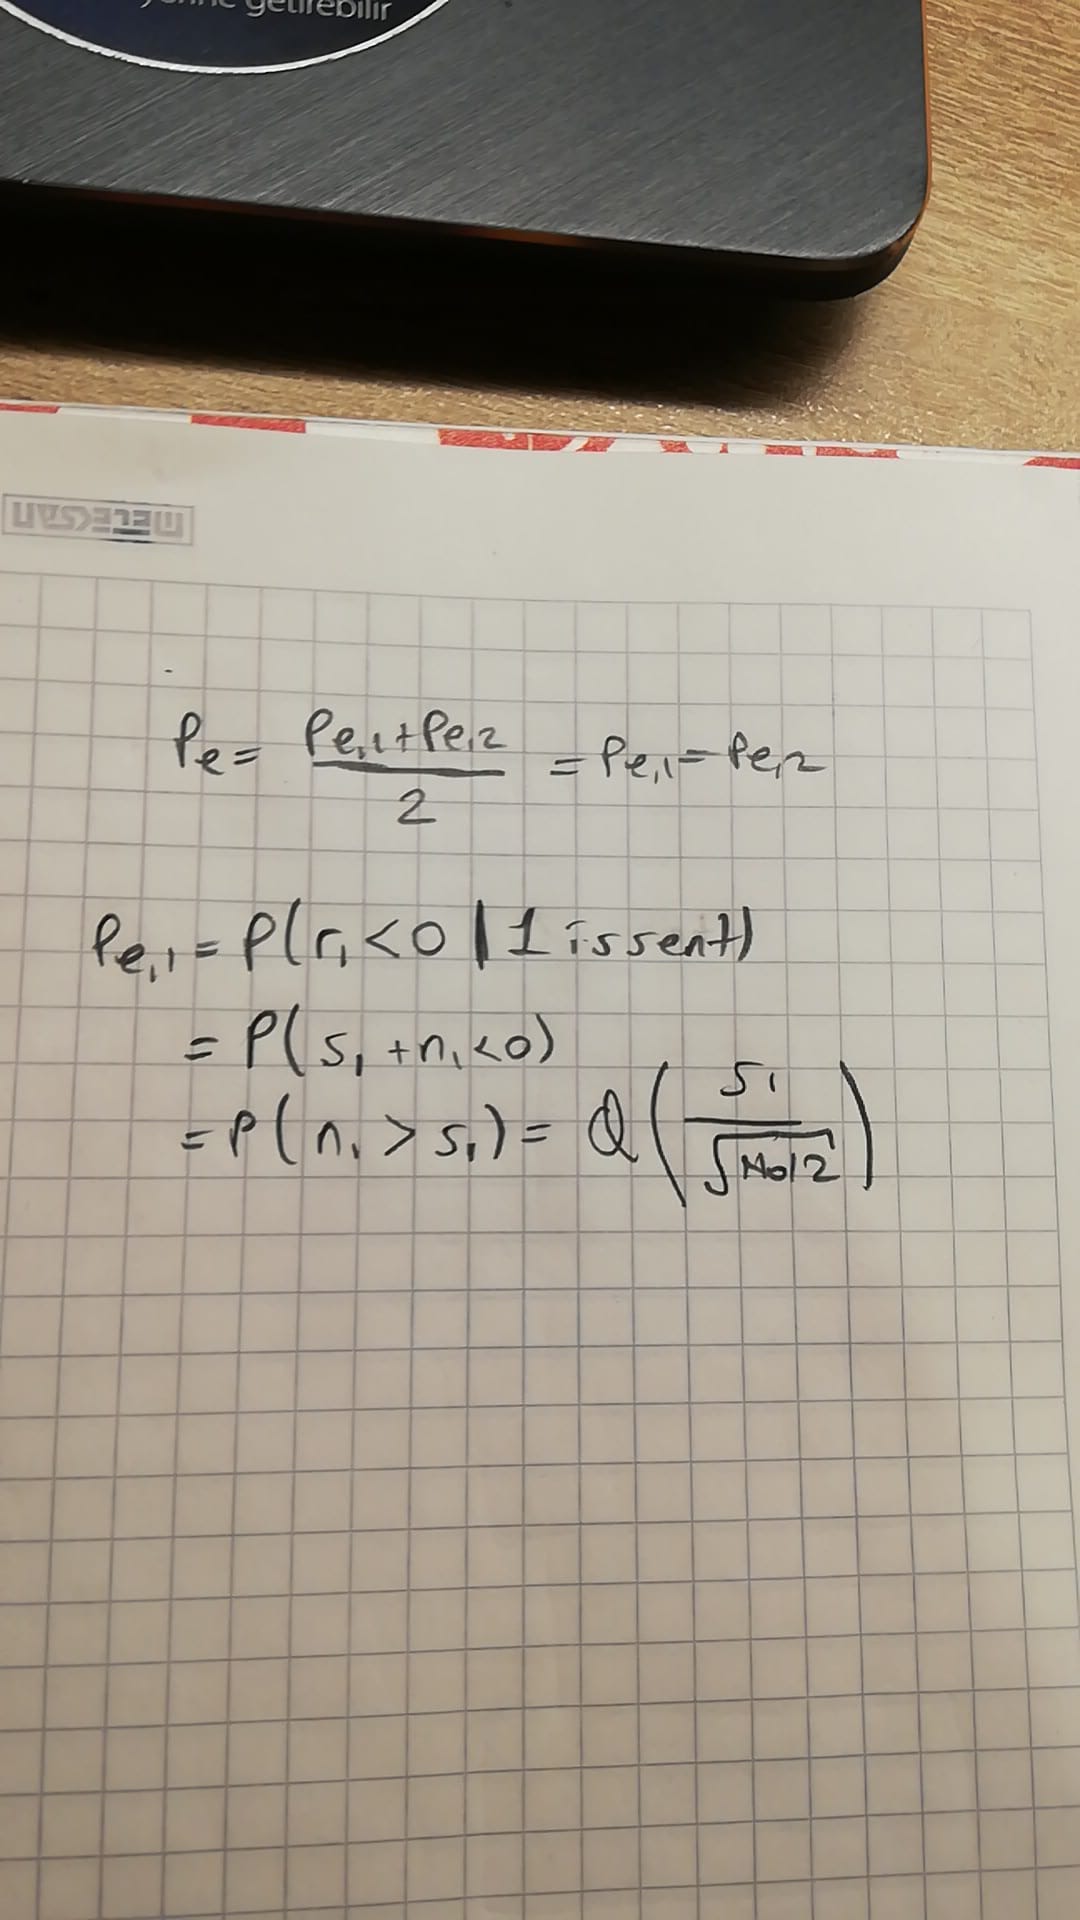 getirebilir
MELEKSAN
Pe = (Pe,1 + Pe,2) / 2 = Pe,1 = Pe,2
Pe,1 = P(r₁ < 0 | 1 is sent)
= P(s₁ + n₁ < 0)
= P(n₁ > s₁) = Q(s₁ / √(N₀/2))